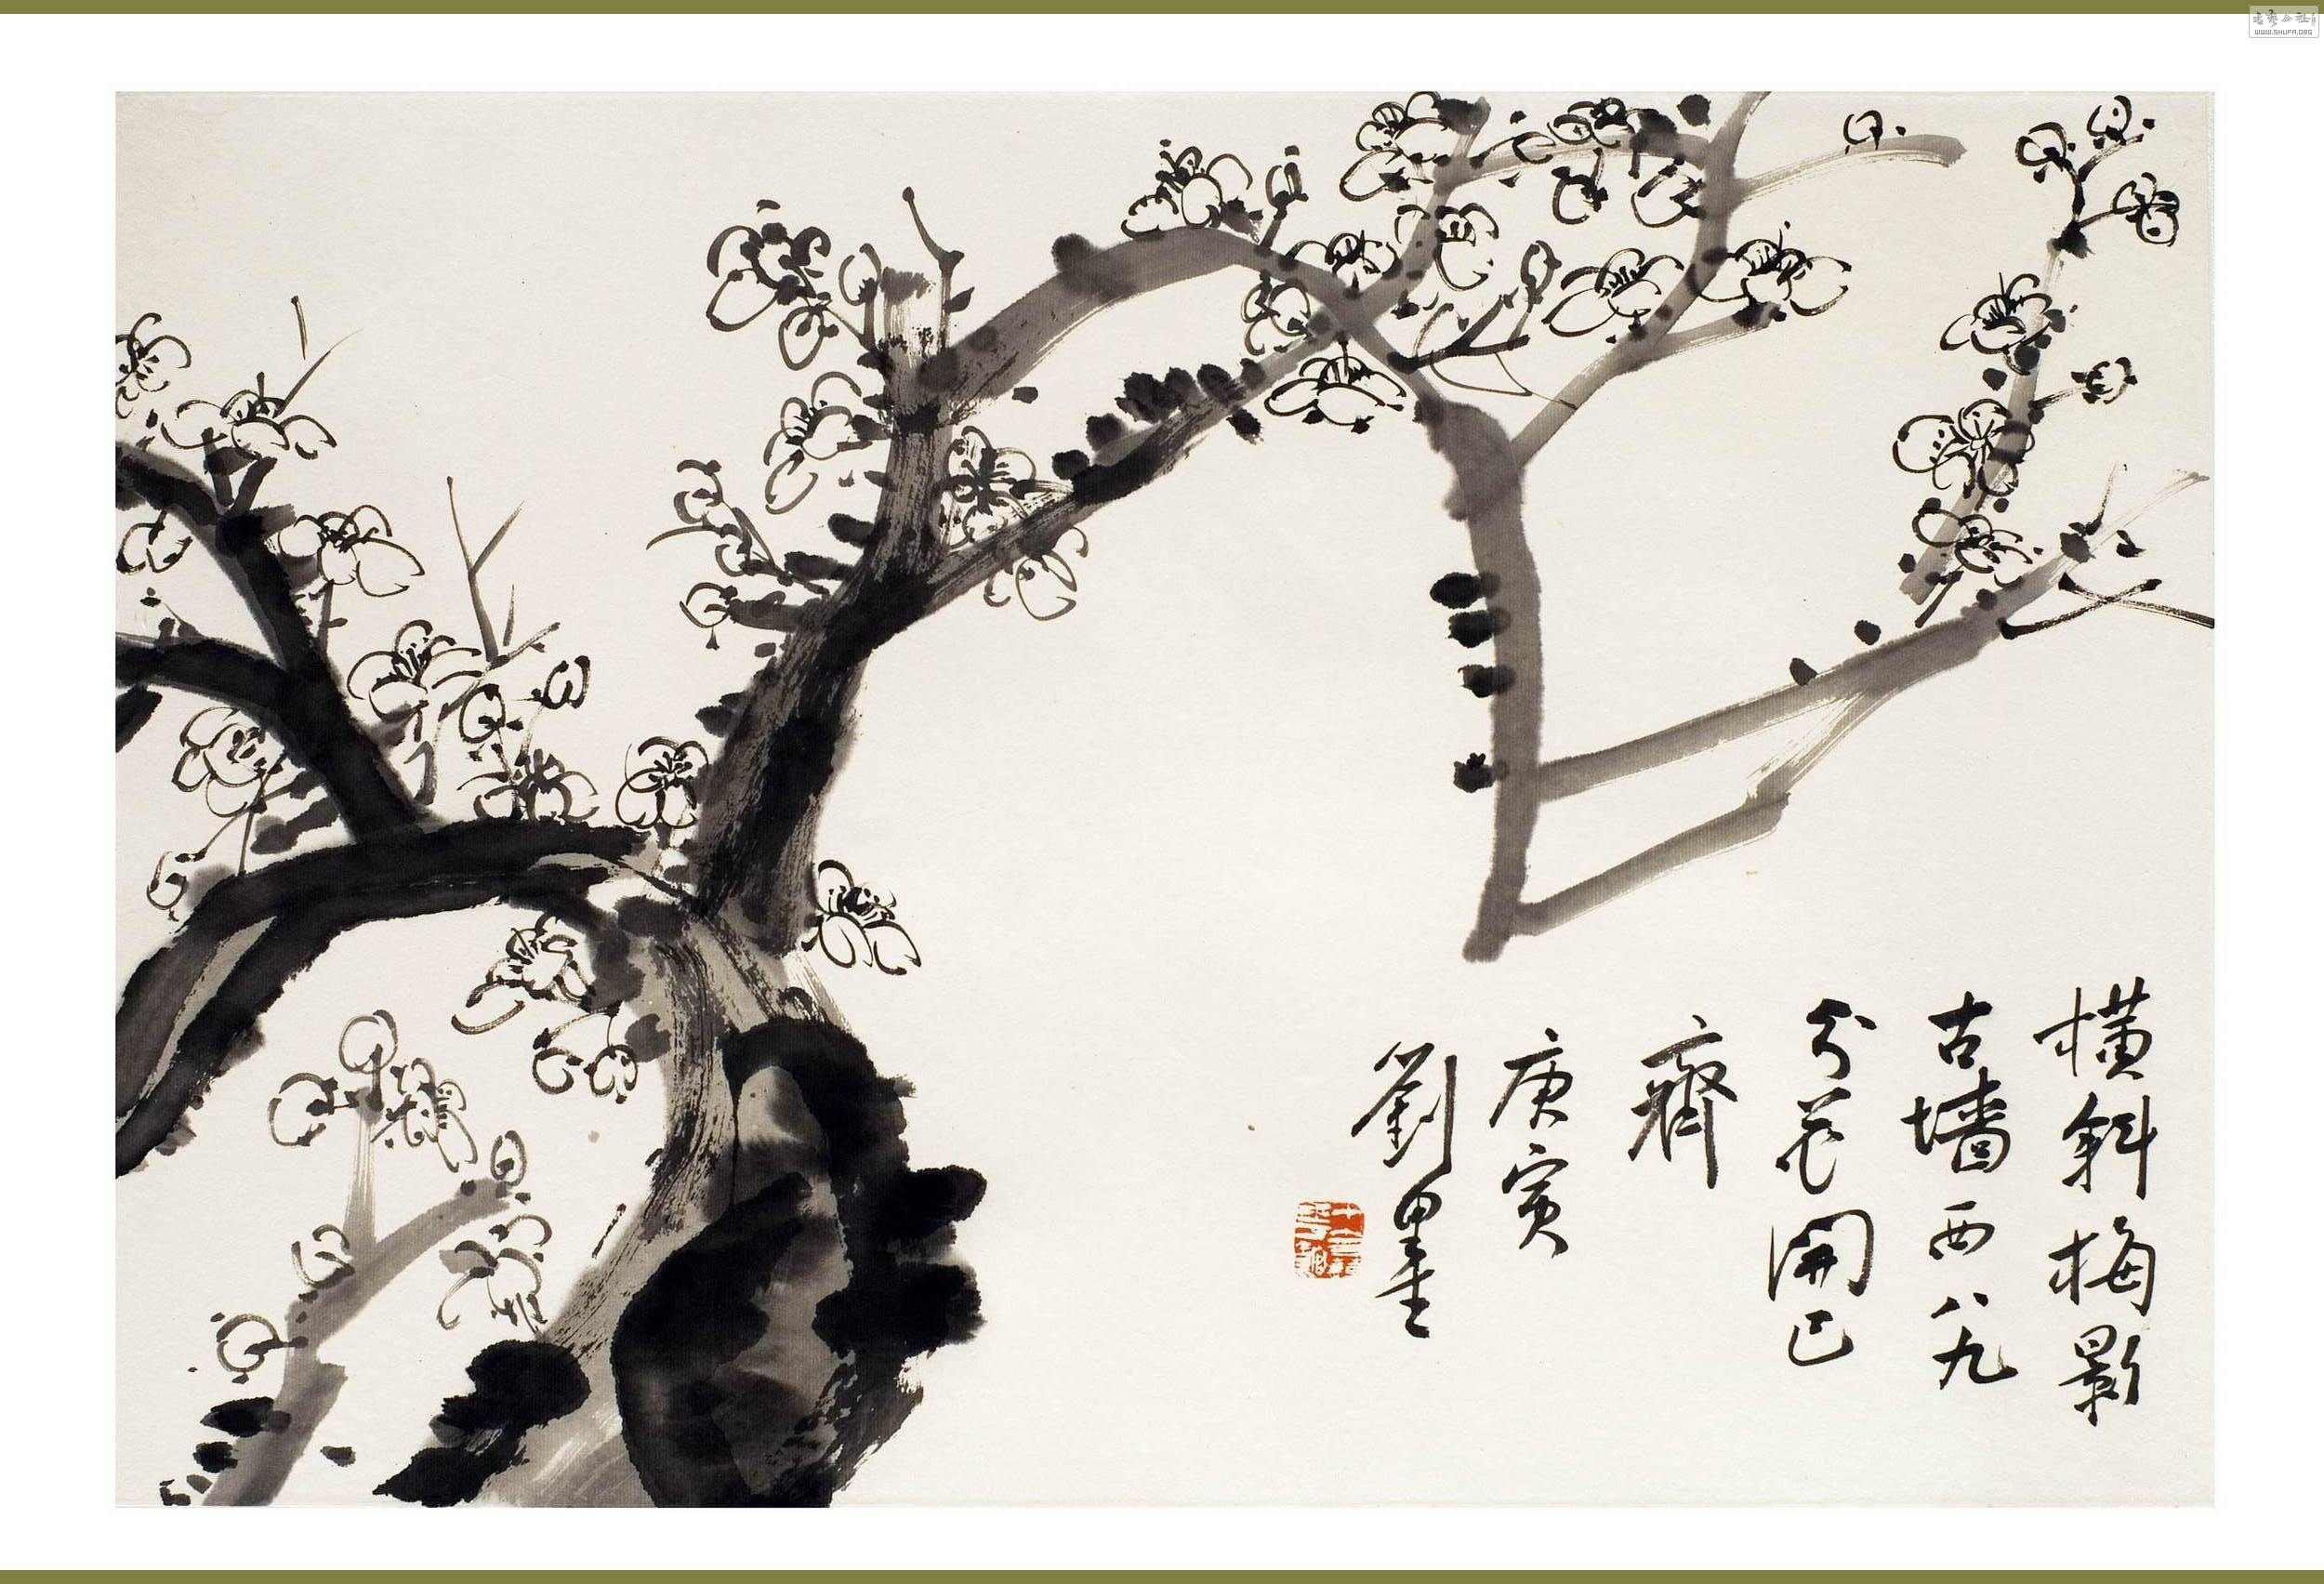 横斜梅影
古墙西八九
分花開已
齊
庚寅
劉墨
WWW.SHUFA.ORG